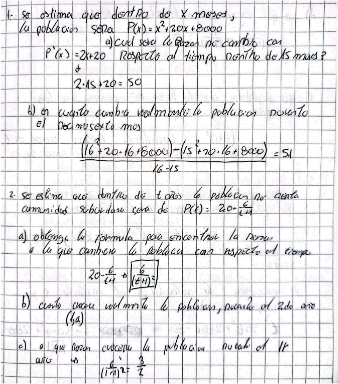 1- se estima que dentro de x meses,
la poblacion sera P(x)=x²+20x+8000
a) cual sera la razon de cambio con
P'(x)=2x+20 Respecto al tiempo dentro de 15 meses?
2·15+20=50
b) en cuanto cambia realmente la poblacion durante
el decimosexto mes
(16²+20·16+8000)-(15²+20·16+8000) = 51
16-15
2. se estima que dentro de t años la poblacion de cierta
comunidad suburbana sera de P(t)= 20-6/t+1
a) obtenga la formula para encontrar la razon
a la que cambia la poblacion con respecto al tiempo
20-6/t+1 → 6/(t+1)²
b) cuanto crece realmente la poblacion, durante el 2do año
c) a que razon crecera la poblacion durante el 1r
año 6/(1+1)² = 3/2